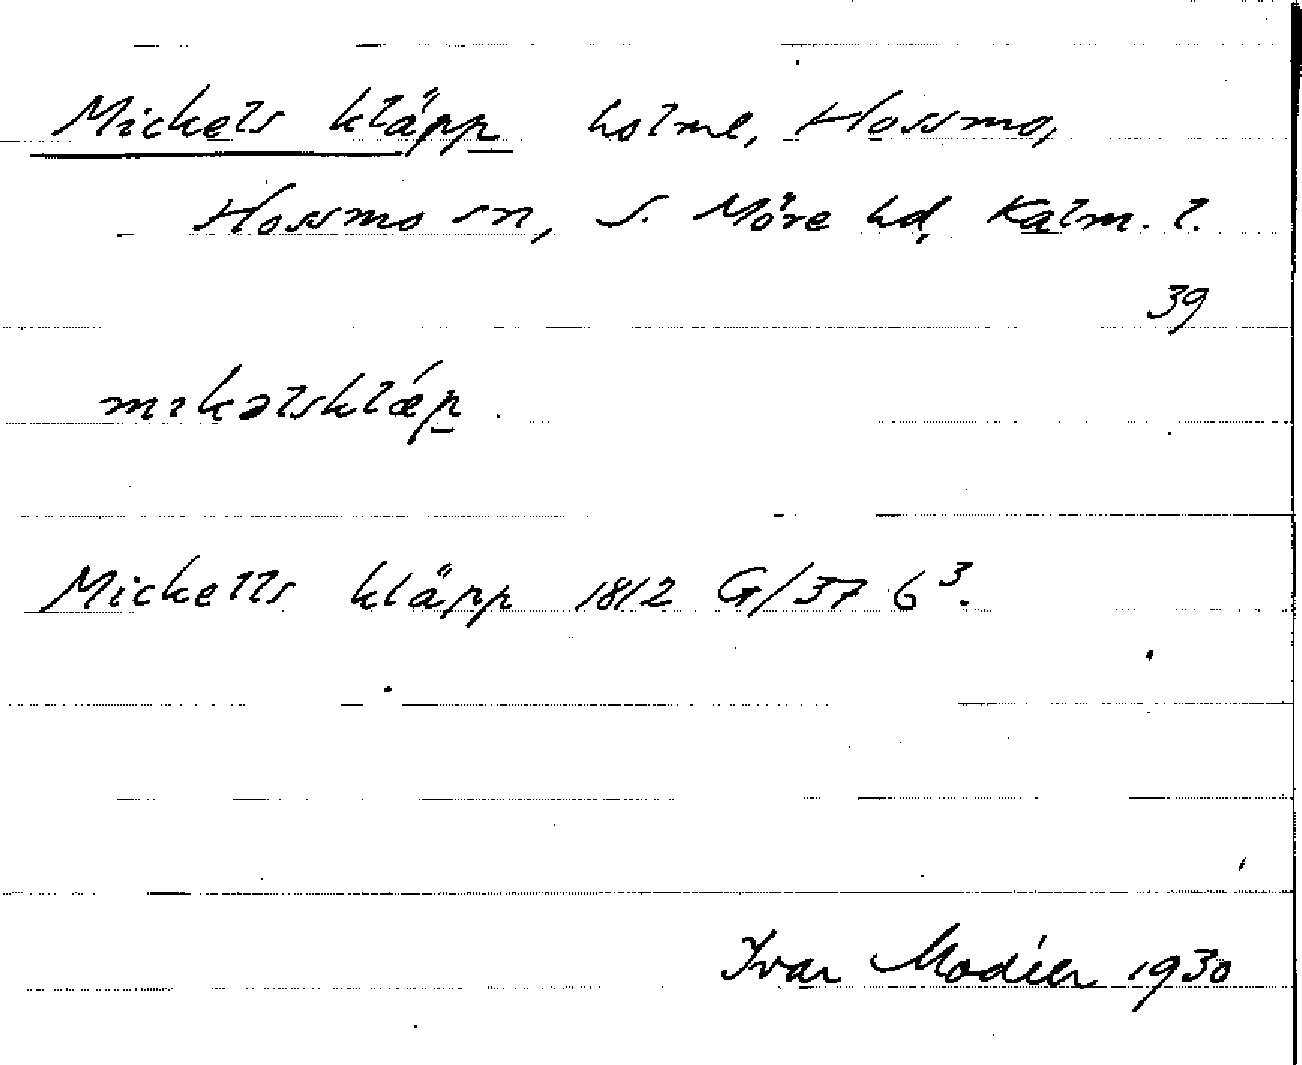 Mickels kläpp holme, Hossmo,
Hossmo sn, S. Möre hd, Kalm. l.
39
mɩkəlsklǽp
Mickells kläpp 1812 G/37 6³.
Ivar Modéer 1930